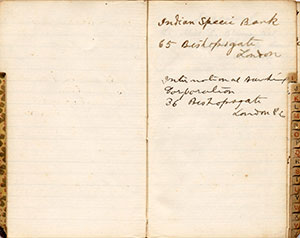 Indian Specie Bank
65 Bishopsgate
London
International Banking
Corporation
36 Bishopsgate
London E.C